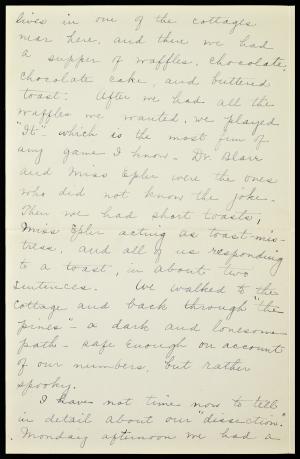 lives in one of the cottages
near here, and there we had
a supper of waffles, chocolate,
chocolate cake, and buttered
toast. After we had all the
waffles we wanted, we played
"It" which is the most fun of
any game I know. Dr. Blair
and Miss Epler were the ones
who did not know the joke.
Then we had short toasts,
Miss Epler acting as toast-mis-
tress, and all of us responding
to a toast, in about two
sentences. We walked to the
cottage and back through "the
pines" - a dark and lonesome
path - safe enough on account
of our numbers, but rather
spooky.
I have not time now to tell
in detail about our "dissection."
Monday afternoon we had a